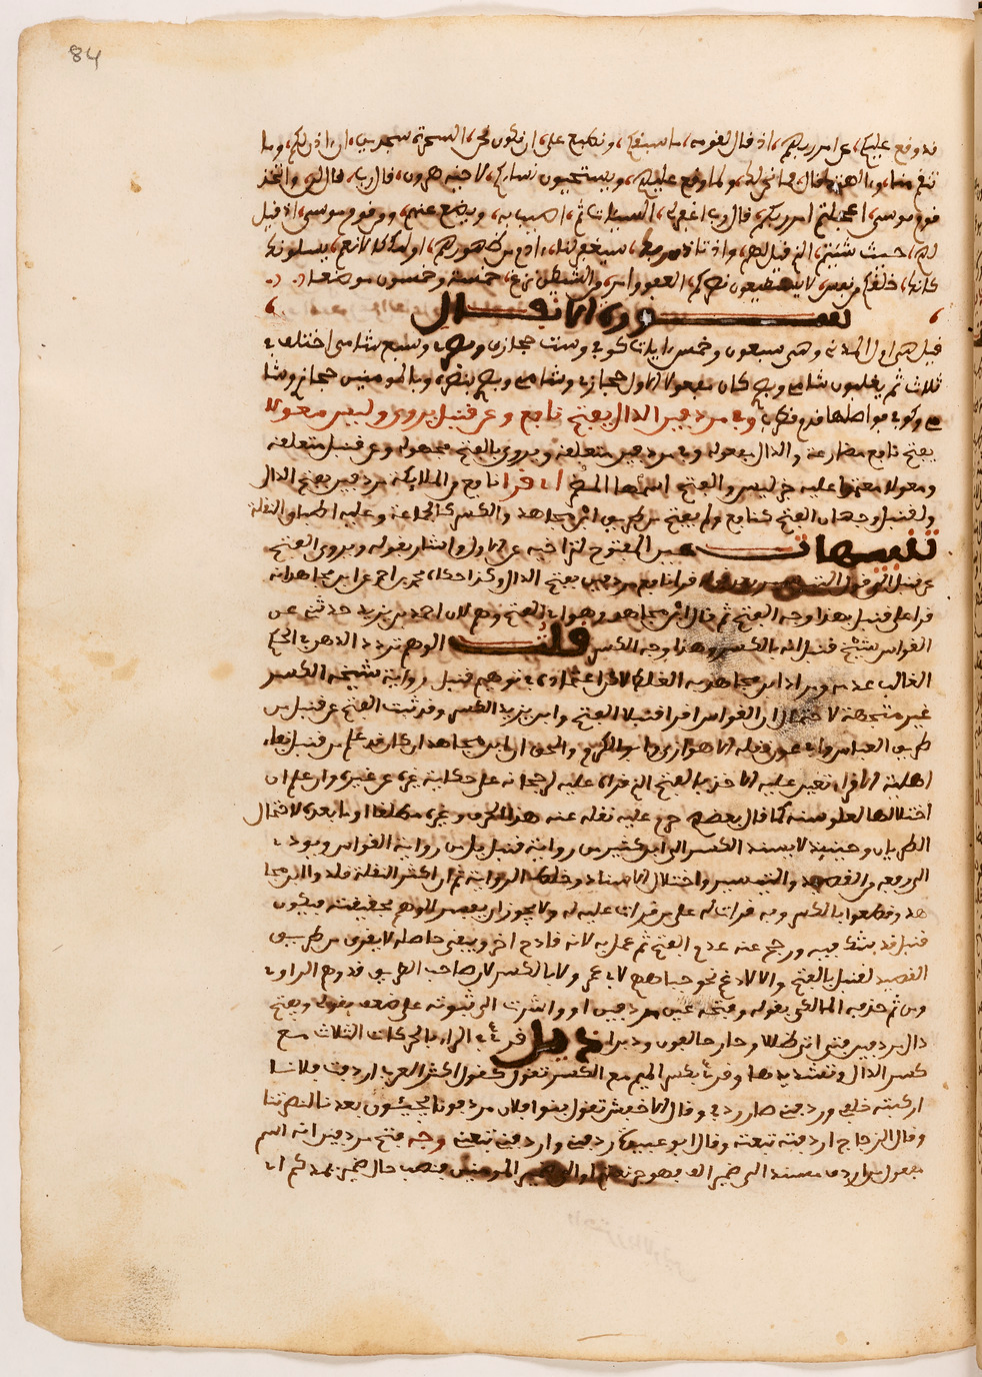 84
قد وقع عليكم، عن امر ربهم، اذ قال لقومه، ما سبقكم، ونطبع على، ان نكون نحن، السحرة سجدين، ان اذن لكم، وما
تنقم منا، والهتك قال، ولما وقع عليهم، ويستحيون نساءكم، لاخيه هرون، قال رب، قال لن، واتخذ
قوم موسى، اعجلتم امر ربكم، قال رب اغفر لى، السيئات ثم، اصيب به، ويضع عنهم، ومن قوم موسى، اذ قيل
لهم، حيث شئتم، الذى قيل لهم، واذ تاذن ربك، سيغفر لنا، ادم من ظهورهم، اولئك كالانعم، يسلونك
كانك، خلقكم من نفس، لا يستطيعون نصركم، العفو وامر، والشيطن نزغ، خمسة وخمسون موضعا
ســـورة الانفـــال
قيل هى اول المدنى وهى سبعون وخمس ايات كوفى وست حجازى وبصرى وسبع شامى اختلافها
ثلاث ثم يغلبون شامى وبصرى كان مفعولا الاول حجازى وشامى وبصرى بنصره وبالمومنين حجازى وشا
مى وكوفى فواصلها ندم قطرب وفى مردفين الدال يفتح نافع وعن قنبل يروى وليس معولا
يفتح نافع مضارعة والدال مفعوله وفى مردفين متعلقه ويروى بالفتح مجهوله وعن قنبل متعلقه
ومعولا معتمدا عليه خبر ليس والفتح اسمها اى قرا نافع من الملايكة مردفين بفتح الدال
ولقنبل وجهان الفتح كنافع ولم يفتح من طريق ابن مجاهد والكسر كالجماعة وعليه اطباق النقلة
تنبيهات عين المفتوح لتراخيه عن الاول واشار بقوله ويروى الفتح
عن قنبل الى قول التيسير قرا نافع مردفين بفتح الدال وكذا حكاه محمد بن احمد عن ابن مجاهد انه
قرا على قنبل بهذا وجه الفتح ثم قال ابن مجاهد وهو اى الفتح وهم لان احمد بن يزيد حدثنى عن
القواس شيخ قنبل انه بالكسر وهذا وجه الكسر قلت الوهم تردد الذهن فى الحكم
الغالب عدمه ومراد ابن مجاهد به الغلط
غير متجهة لاحتمال ان القواس اقرا قنبلا الفتح وابن يزيد الكسر وقد ثبت الفتح عن قنبل من
طريق العباس وابى عون ونقله الاهوازى وابو الكرم والحق ان ابن مجاهد ان كان قد علم من قنبل بقاء
اهلية الاقراء تعين عليه الاخذ بالفتح الذى قراه عليه لرجحانه على حكاية غيره عن غيره وان علم ان
اختلالها لعلو سنه كما قال بعضهم حرم عليه نقله عنه هذا الحرف وغيره مطلقا او ما بعده لاحتمال
الطريان وحينيذ لا يسند الكسر الى ابن كثير من رواية قنبل بل من رواية القواس ويود
الى رفعه من القصيد والتيسير واختلال الاسناد وخلط الرواية ثم ان اكثر النقلة قلدوا ابن مجا
هد وقطعوا بالكسر وبه قرات له على من قرات عليه له ولا يجوز ان يفسر الوهم بحقيقته فيكون
قنبل قد شك فيه ورجح عنه عدم الفتح ثم عمل به لانه قادح اخر ويبقى حاصله لا يقرى من طريق
القصيد لقنبل بالفتح والا لادغم نحو جباههم لابى عمرو ولا بالكسر لان صاحب الطريق قد وهم الراوى
ومن ثم جزم به المالكى بقوله وفتحه عين مردفين اوو اشرت الى ثبوته على ضعف بقولى ويفتح
دال مردفين فتى اثر ظلا وحار حالفون ودبرا تذييل قرئ فى الراء بالحركات الثلاث مع
كسر الدال وتشديدها وقرئ بكسر الميم مع الكسر تقول كقول اكثر العرب اردفت فلانا
اركبته خلفى وردفته صار ردفى وقال الاخفش تقول بنو فلان مردفونا يجيئون بعدنا لنصرتنا
وقال الزجاج اردفته تبعته وقال ابو عبيدة ردفته واردفته تبعته وجه فتح مردفين انه اسم
مفعول من اردف مسند الى ضمير الف فهو جر نعتها او الى ضمير المومنين فنصب حال ضمير يمدكم اى